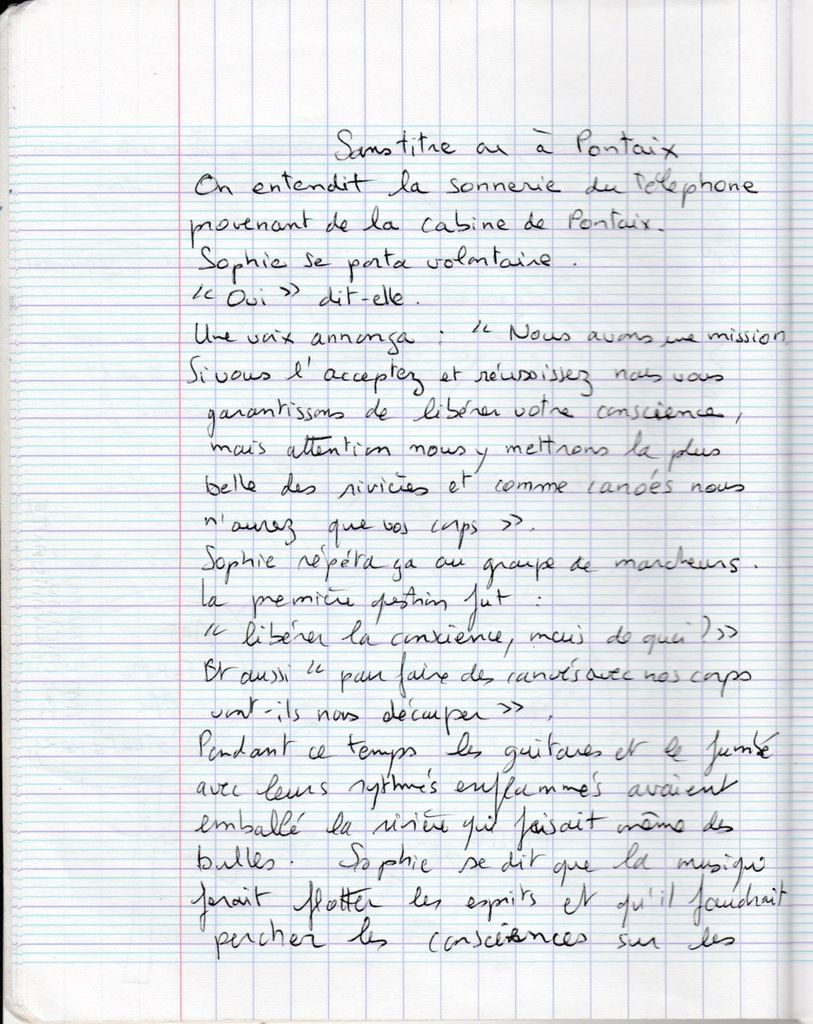 Sans titre ou à Pontaix
On entendit la sonnerie du Téléphone
provenant de la cabine de Pontaix.
Sophie se porta volontaire.
« Oui » dit-elle.
Une voix annonça : « Nous avons une mission
Si vous l'acceptez et réussissez nous vous
garantissons de libérer votre conscience,
mais attention nous y mettrons la plus
belle des rivières et comme canoés nous
n'aurez que vos corps ».
Sophie répéta ça au groupe de marcheurs.
La première question fut :
« libérer la conscience, mais de quoi ? »
Et aussi « pour faire des canoés avec nos corps
vont-ils nous découper ».
Pendant ce temps les guitares et le
avec leurs rythmes enflammés avaient
emballé la rivière qui faisait même des
bulles. Sophie se dit que la musique
ferait flotter les esprits et qu'il faudrait
percher les consciences sur les